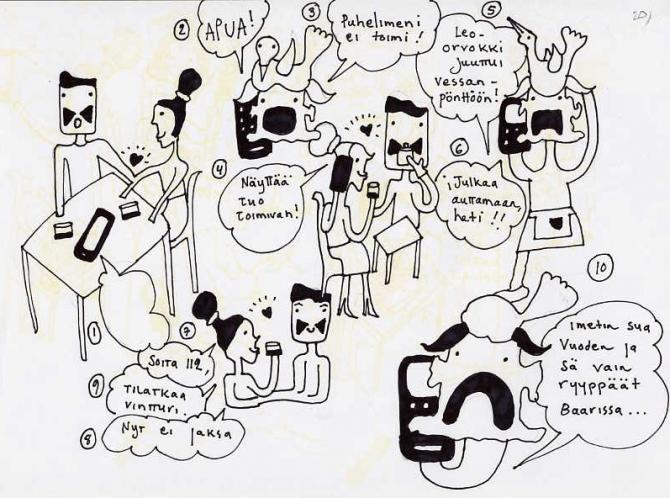 20)
①
②
APUA!
③
Puhelimeni
ei toimi!
④
Näyttää
tuo
toimivan!
⑤
Leo-
orvokki
juuttui
vessan-
pönttöön!
⑥
¡Julkaa
auttamaan,
heti !!
⑦
Soita 112,
⑨
TILATKAA
VINTTURI.
⑧
Nyt ei jaksa
⑩
imetin sua
Vuoden ja
Sä vain
ryyppäät
Baarissa...